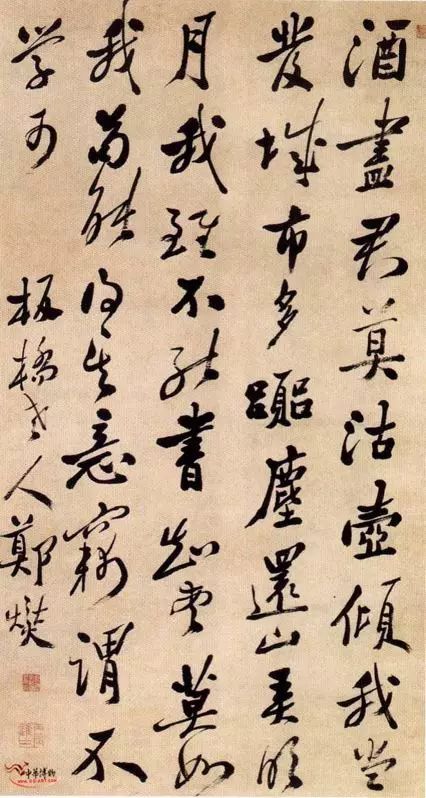 酒盡君莫沽壺傾我當
發城市多囂塵還山弄明
月我雖不能書知書莫如
我苟能得其意竊謂不
學可
板橋老人鄭燮
中華博物